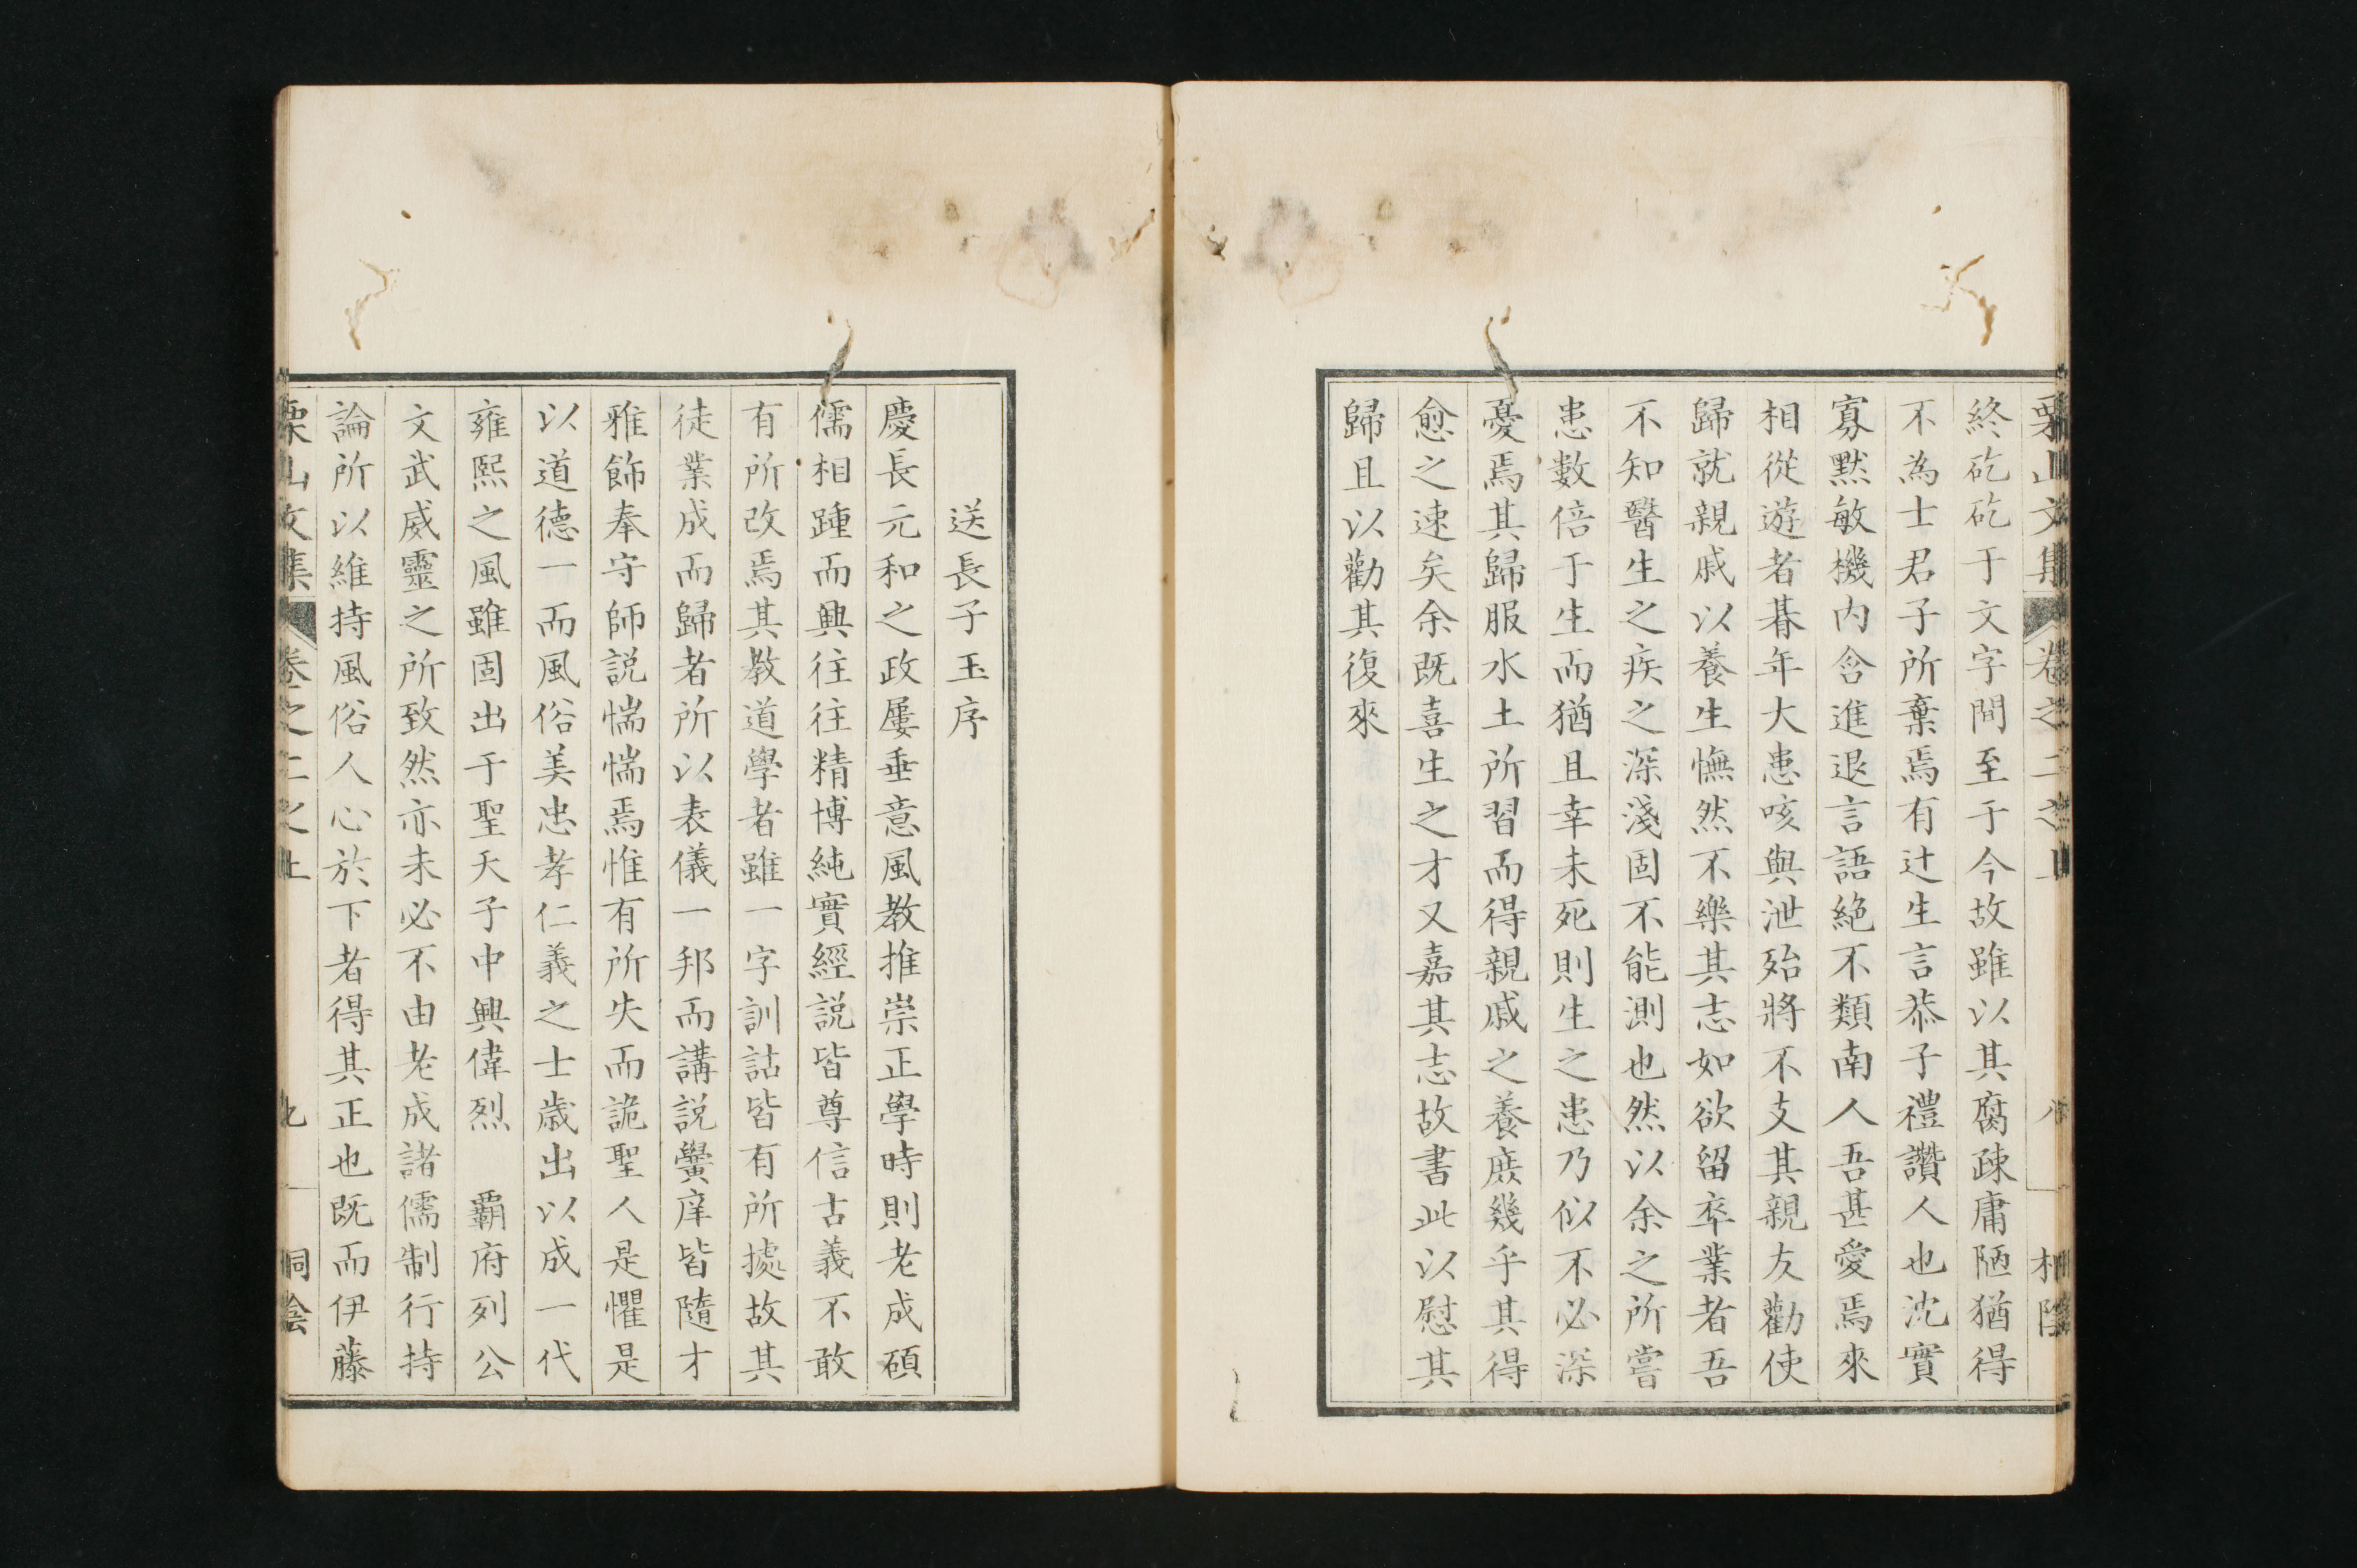 栗山文集 卷之二之上 八 桐陰
終矻矻于文字間至于今故雖以其腐疎庸陋猶得
不為士君子所棄焉有辻生言恭子禮讚人也沈實
寡黙敏機内含進退言語絶不類南人吾甚愛焉來
相從遊者朞年大患咳與泄殆將不支其親友勸使
歸就親戚以養生憮然不樂其志如欲留卒業者吾
不知醫生之疾之深淺固不能測也然以余之所嘗
患數倍于生而猶且幸未死則生之患乃似不必深
憂焉其歸服水土所習而得親戚之養庶幾乎其得
愈之速矣余既喜生之才又嘉其志故書此以慰其
歸且以勸其復來
送長子玉序
慶長元和之政屢垂意風教推崇正學時則老成碩
儒相踵而興往往精博純實經説皆尊信古義不敢
有所改焉其教道學者雖一字訓詁皆有所據故其
徒業成而歸者所以表儀一邦而講説黌庠皆隨才
雅飾奉守師説惴惴焉惟有所失而詭聖人是懼是
以道德一而風俗美忠孝仁義之士歳出以成一代
雍熙之風雖固出于聖天子中興偉烈　覇府列公
文武威靈之所致然亦未必不由老成諸儒制行持
論所以維持風俗人心於下者得其正也既而伊藤
栗山文集 卷之二之上 九 桐陰